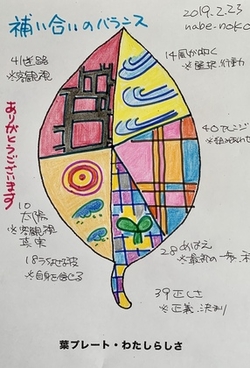 補い合いのバランス
2019.2.23
nabe-noko
41 迷路
※客観視
14 風が吹く
※選択、行動
ありがとうございます
40 アレンジ
10
太陽
※客観視
真実
18 うちなる波
※自身を信じる
28 めばえ
※最初の一歩、
39 正しさ
※正義、決まり
葉プレート・わたしらしさ